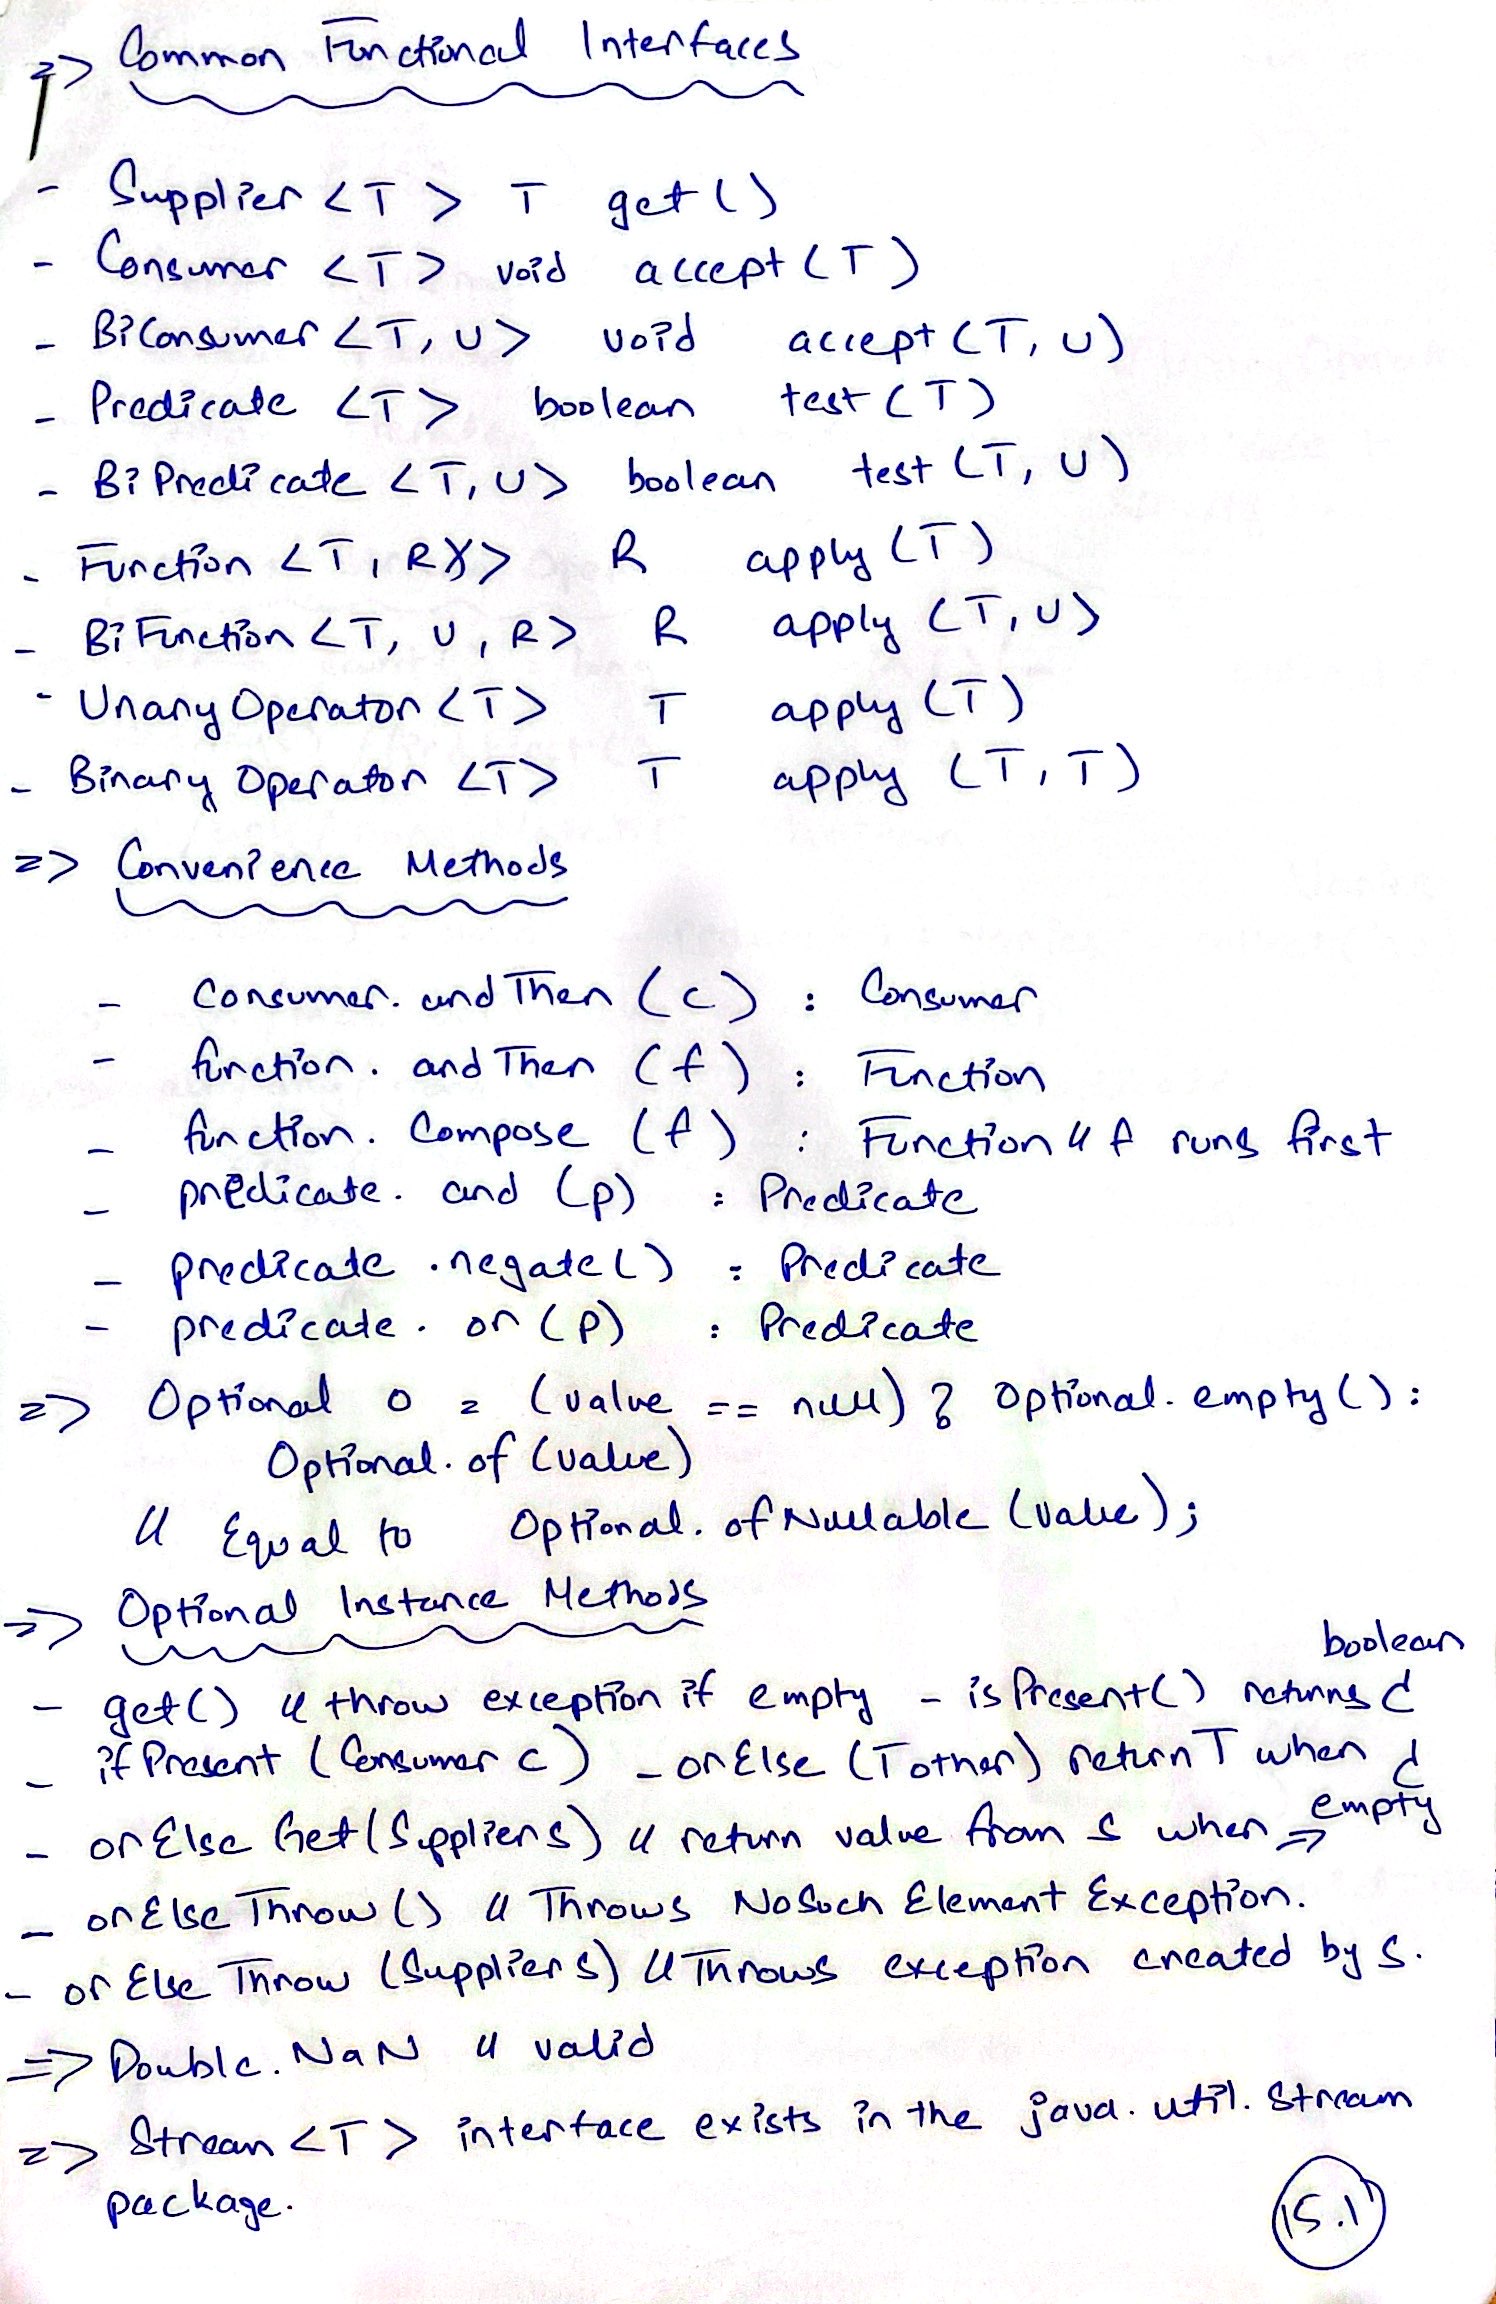 => Common Functional Interfaces
- Supplier <T> T get()
- Consumer <T> void accept(T)
- BiConsumer <T, U> void accept(T, U)
- Predicate <T> boolean test(T)
- BiPredicate <T, U> boolean test(T, U)
- Function <T, R> R apply(T)
- BiFunction <T, U, R> R apply(T, U)
- UnaryOperator <T> T apply(T)
- BinaryOperator <T> T apply(T, T)
=> Convenience Methods
- consumer.andThen(c) : Consumer
- function.andThen(f) : Function
- function.compose(f) : Function // f runs first
- predicate.and(p) : Predicate
- predicate.negate() : Predicate
- predicate.or(p) : Predicate
=> Optional o = (value == null) ? Optional.empty() :
Optional.of(value)
// Equal to Optional.ofNullable(value);
=> Optional Instance Methods
boolean
- get() // throw exception if empty - isPresent() returns
- ifPresent(Consumer c) - orElse(T other) return T when
empty
- orElseGet(Supplier s) // return value from s when =>
- orElseThrow() // Throws NoSuchElementException.
- orElseThrow(Supplier s) // Throws exception created by s.
=> Double.NaN // valid
=> Stream<T> interface exists in the java.util.stream
package.
15.1